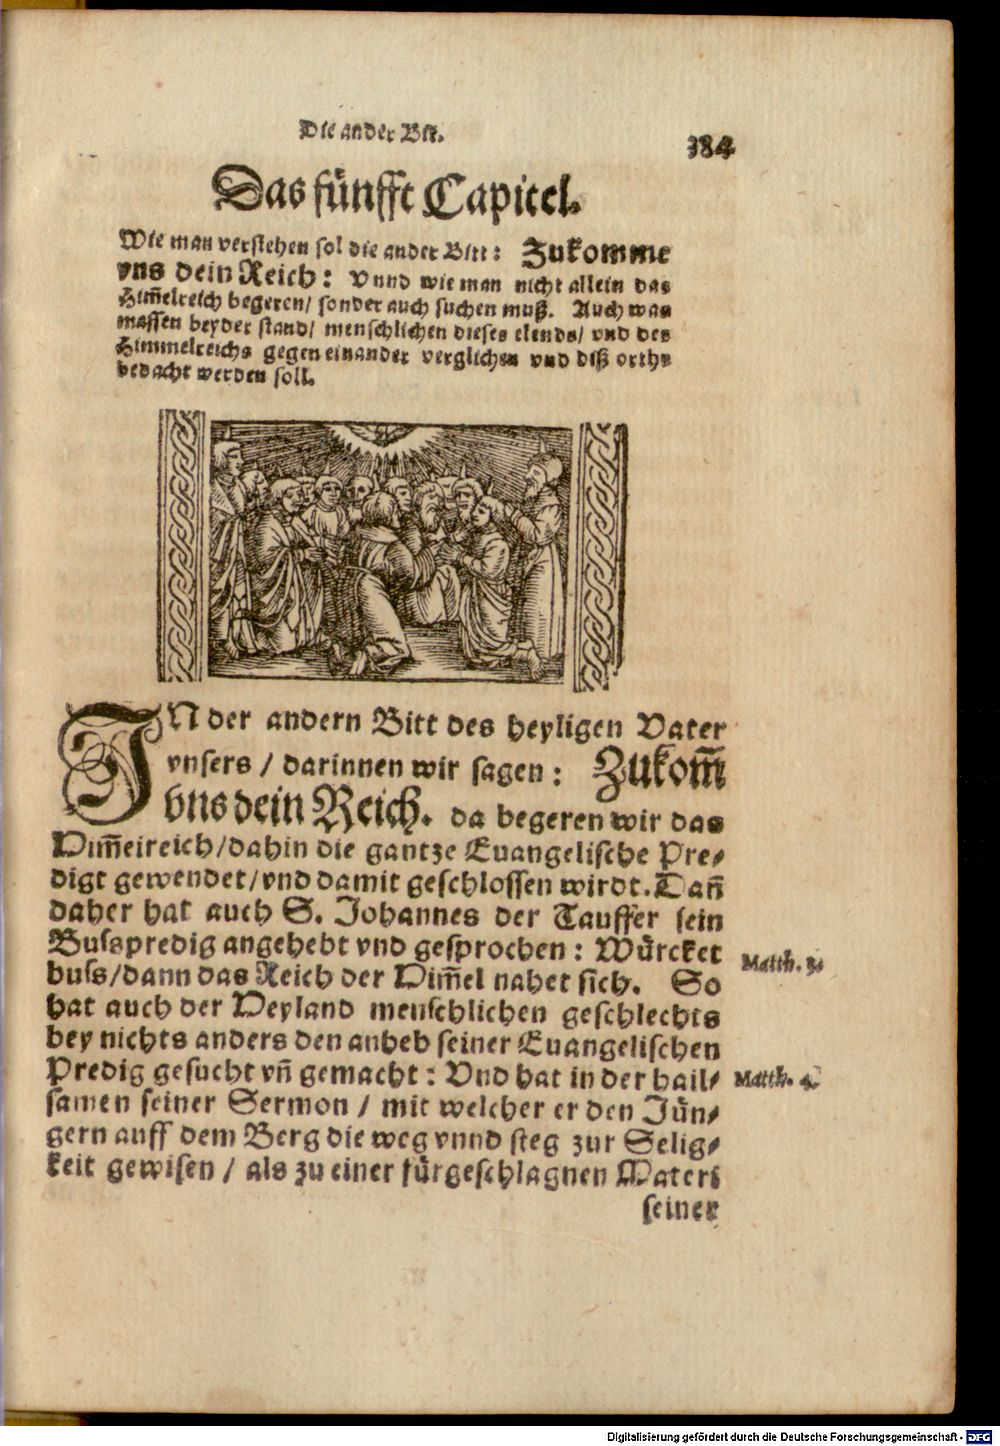 Die ander Bit.
384
Das fünfft Capitel.
Wie man verstehen sol die ander Bitt: Zukomme
vns dein Reich: Vnnd wie man nicht allein das
Him̃elreich begeren/ sonder auch suchen muß. Auch was
massen beyder stand/ menschlichen dieses elends/ vnd des
Himmelreichs gegen einander verglichen vnd diß orths
bedacht werden soll.
IN der andern Bitt des heyligen Vater
vnsers / darinnen wir sagen: Zukom̃
vns dein Reich. da begeren wir das
Him̃elreich/dahin die gantze Euangelische Pre-
digt gewendet/vnd damit geschlossen wirdt. Dañ
daher hat auch S. Johannes der Tauffer sein
Busspredig angehebt vnd gesprochen: Würcket
buss/dann das Reich der Him̃el nahet sich. So
hat auch der Heyland menschlichen geschlechts
bey nichts anders den anheb seiner Euangelischen
Predig gesucht vñ gemacht: Vnd hat in der hail-
samen seiner Sermon / mit welcher er den Jün-
gern auff dem Berg die weg vnnd steg zur Selig-
keit gewisen / als zu einer fürgeschlagnen Materi
seiner
Matth. 3.
Matth. 4.
Digitalisierung gefördert durch die Deutsche Forschungsgemeinschaft - DFG